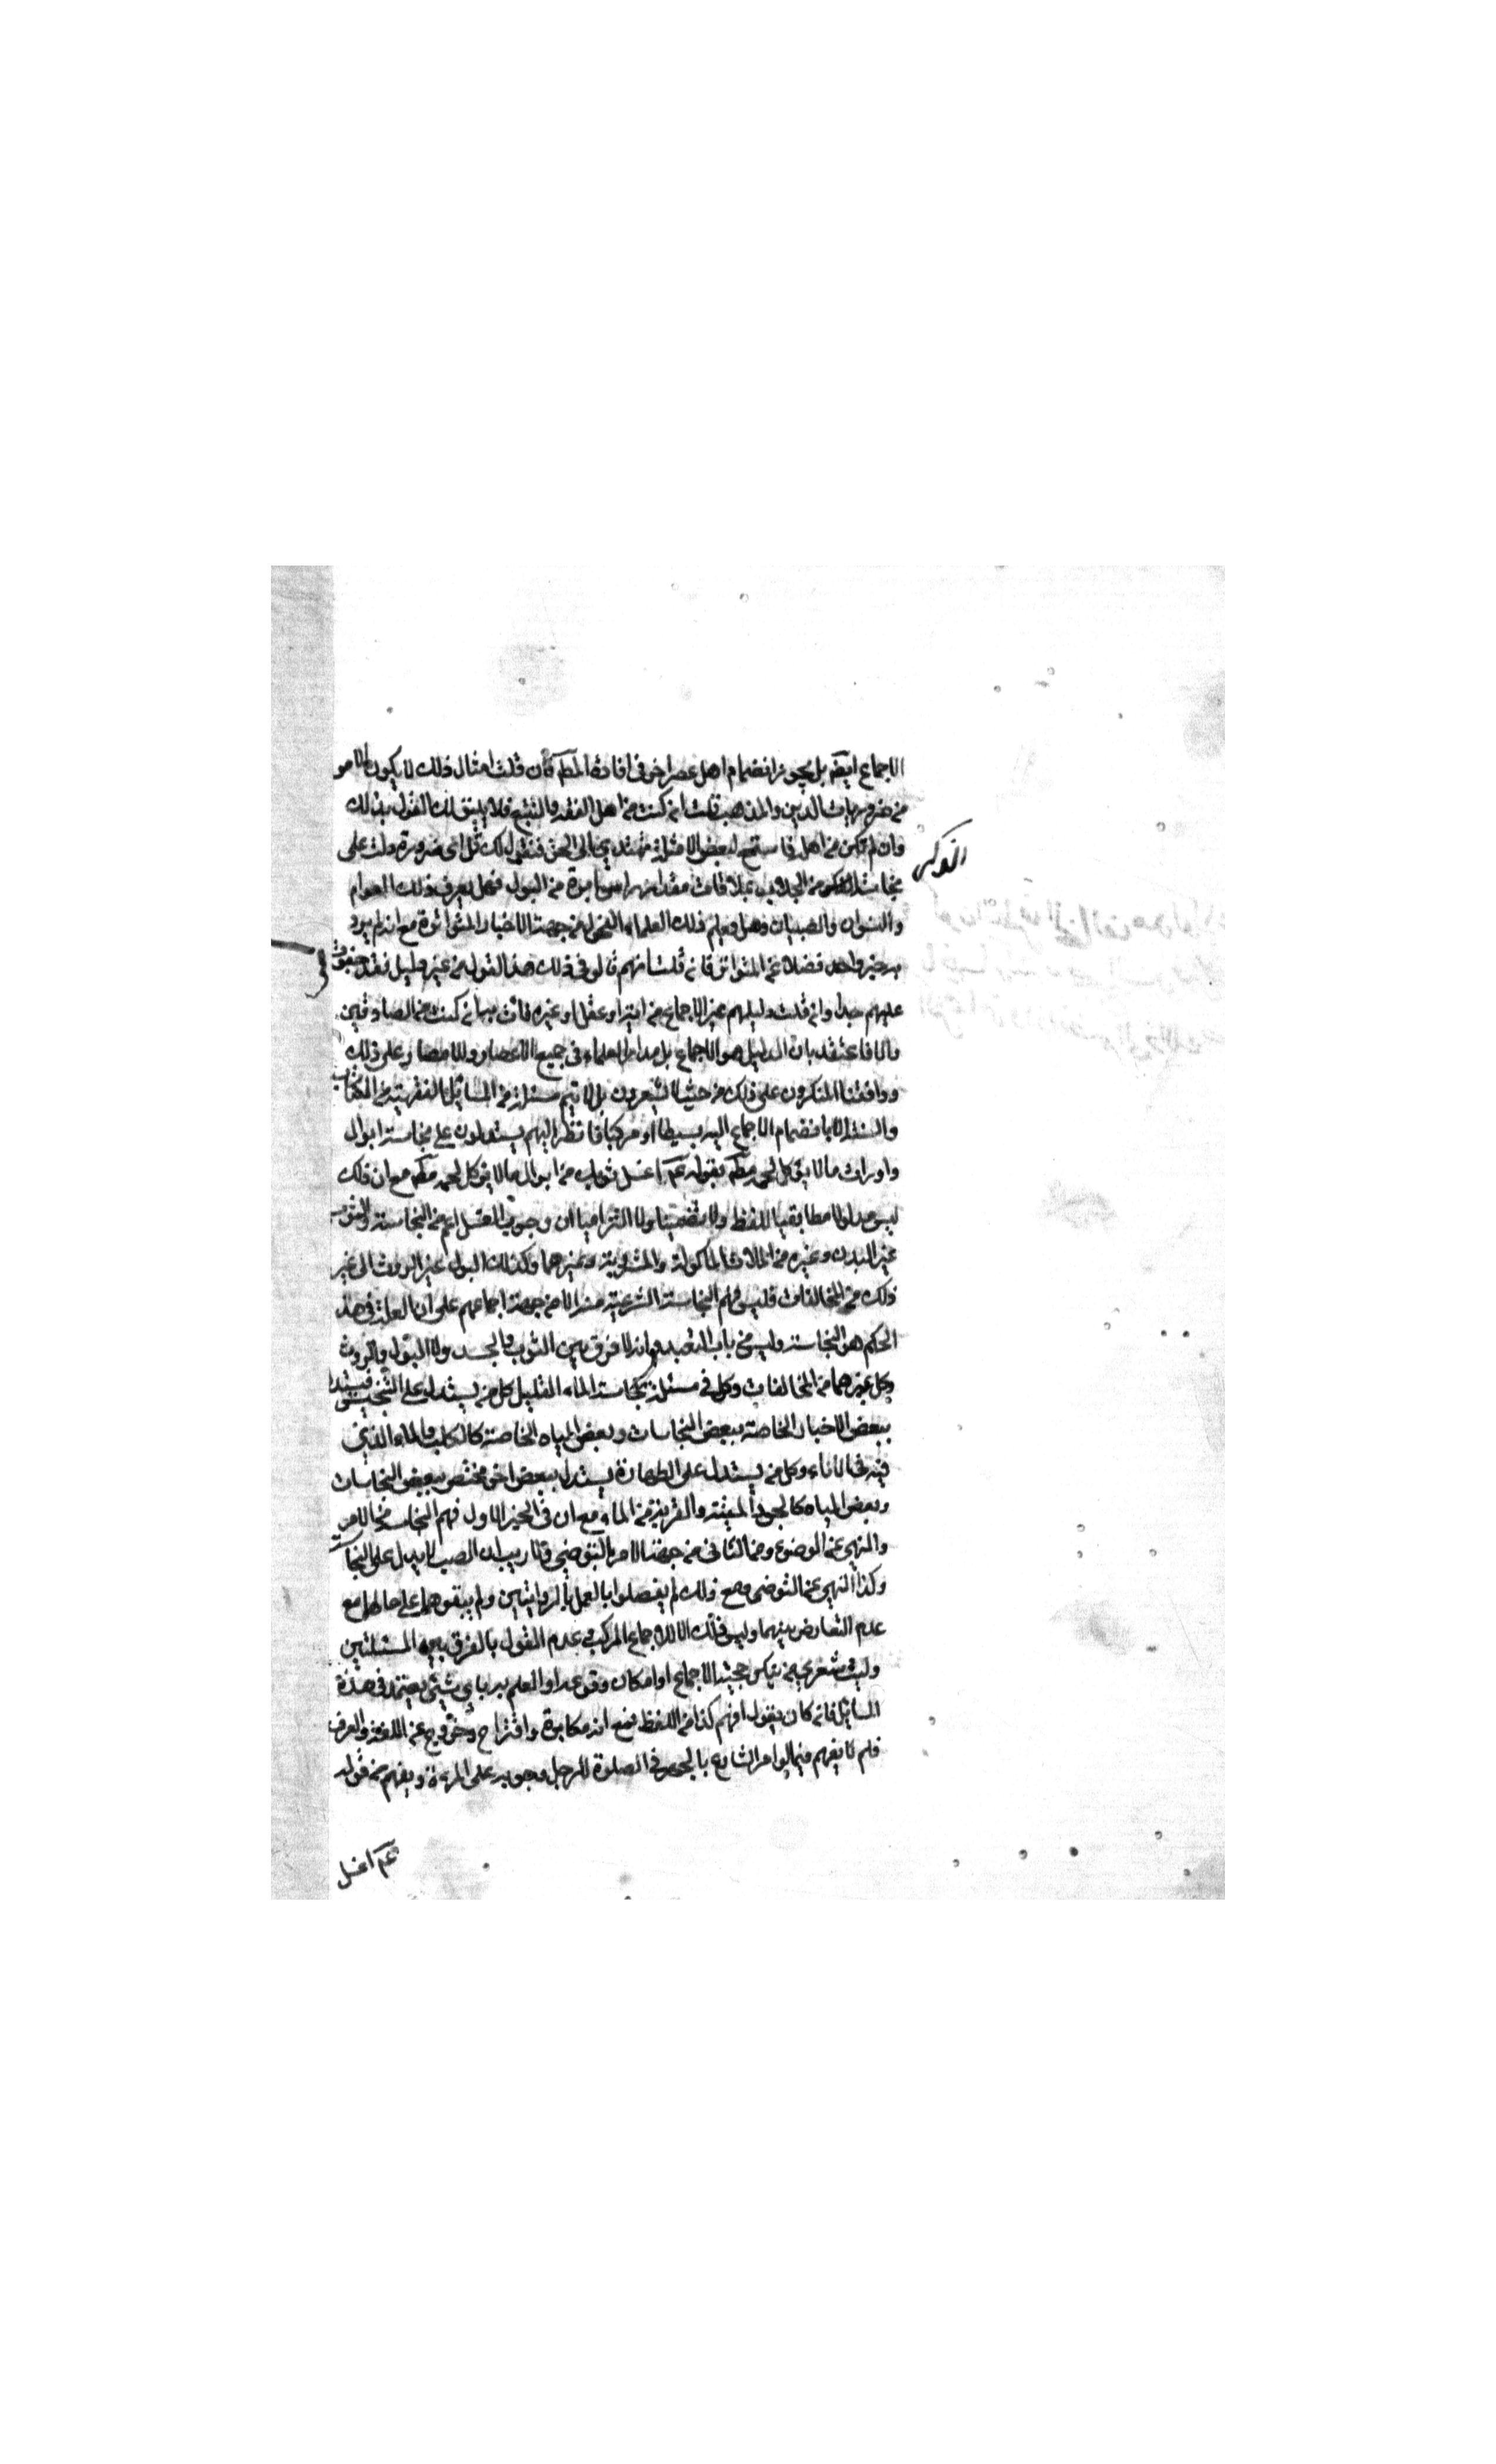 الاجماع ايضم بل يجوز انضمام اهل عصر اخر في افادة المطلم فان قلت امثال ذلك لا يكون الا من
من ضروريات الدين والمذهب قلت ان كنت من اهل الفقه والتتبع فلا يليق لك القول بذلك
وان لم تكن من اهله فاستمع لبعض الامثلة تهتدي الى الحق فنقول لك قل اي ضرورة دلت على
نجاسة الف كر من الجلاب بملاقات مقدار راس ابرة من البول فهل يعرف ذلك العوام
والنسوان والصبيان وهل فهم ذلك العلماء الفحول من جهة الاخبار المتواترة مع انه لم يرد
به خبر واحد فضلا عن المتواتر فان قلت انهم قالوا في ذلك هذا القول من غير دليل فقد
عليهم جدا وان قلت دليلهم غير الاجماع من اية او عقل او غيره فات به ان كنت من الصادقين
والا فاعتقد بان الدليل هو الاجماع بل مدار العلماء في جميع الاعصار والامصار على ذلك
ووافقنا المنكرون على ذلك من حيث لا يشعرون بل لا يتم مسئلة من المسائل الفقهية من الكتاب
والسنة الا بانضمام الاجماع اليه بسيطا او مركبا فانظر اليهم يستدلون على نجاسة ابوال
واوراث ما لا يؤكل لحمه مطلم بقوله عم اغسل ثوبك من ابوال ما لا يؤكل لحمه مطلم مع ان ذلك
ليس مدلولا مطابقيا للفظ ولا تضمنيا ولا التزاميا ان وجوب الغسل اعم من النجاسة والثوب
غير البدن وغيره من الملاقات الماكولة والمشروبة وغيرهما وكذلك البول غير الروث الى غير
ذلك من المخالفات فليس فهم النجاسة الشرعية منه الا من جهة اجماعهم على ان العلة في هذا
الحكم هو النجاسة وليس من باب التعبد وانه لا فرق بين الثوب والجسد ولا البول والروث
وكل غيرهما من المخالفات وكل في مسئلة نجاسة الماء القليل كل من يستدل على التنجيس فيستدل
ببعض الاخبار الخاصة ببعض النجاسات وبعض المياه الخاصة كالكلب والماء الذي
فيه في الاناء وكل من يستدل على الطهارة يستدل ببعض اخر مختص ببعض النجاسات
وبعض المياه كالجرذ الميتة والقربة من الماء مع ان في الخبر الاول فهم النجاسة من الامر
والنهي عن الوضوء ومن الثاني من جهة الامر بالتوضي ولا ريب ان الصب لا يدل على النجاسة
وكذا النهي عن التوضي ومع ذلك لم يفصلوا بالعمل بالروايتين ولم يبقوهما على حالهما مع
عدم التعارض بينهما وليس ذلك الا للاجماع المركب وعدم القول بالفرق بين المسئلتين
وليت شعري من ينكر حجية الاجماع او امكان وقوعه او العلم به باي شيء يعتمد في هذه
المسائل فان كان يقول افهم كذا من اللفظ فمع انه مكابرة واقتراح وخروج عن اللغة والعرف
فلم لا يفهم فيما لو امر الشارع بالجهر في الصلوة للرجل وجوبه على المرءة ويفهم من قوله
عم اغسل